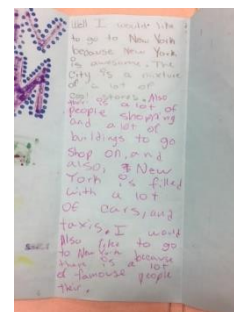 Well I would like
to go to New York
because New York
is awesome. The
City is a mixture
of a lot of
cool stores. Also
there is a lot of
people shopping
and a lot of
buildings to go
shop on, and
also, New
York is filled
with a lot
of cars, and
taxis. I would
Also like to go
to New York because
there is a lot
of famouse people
their.